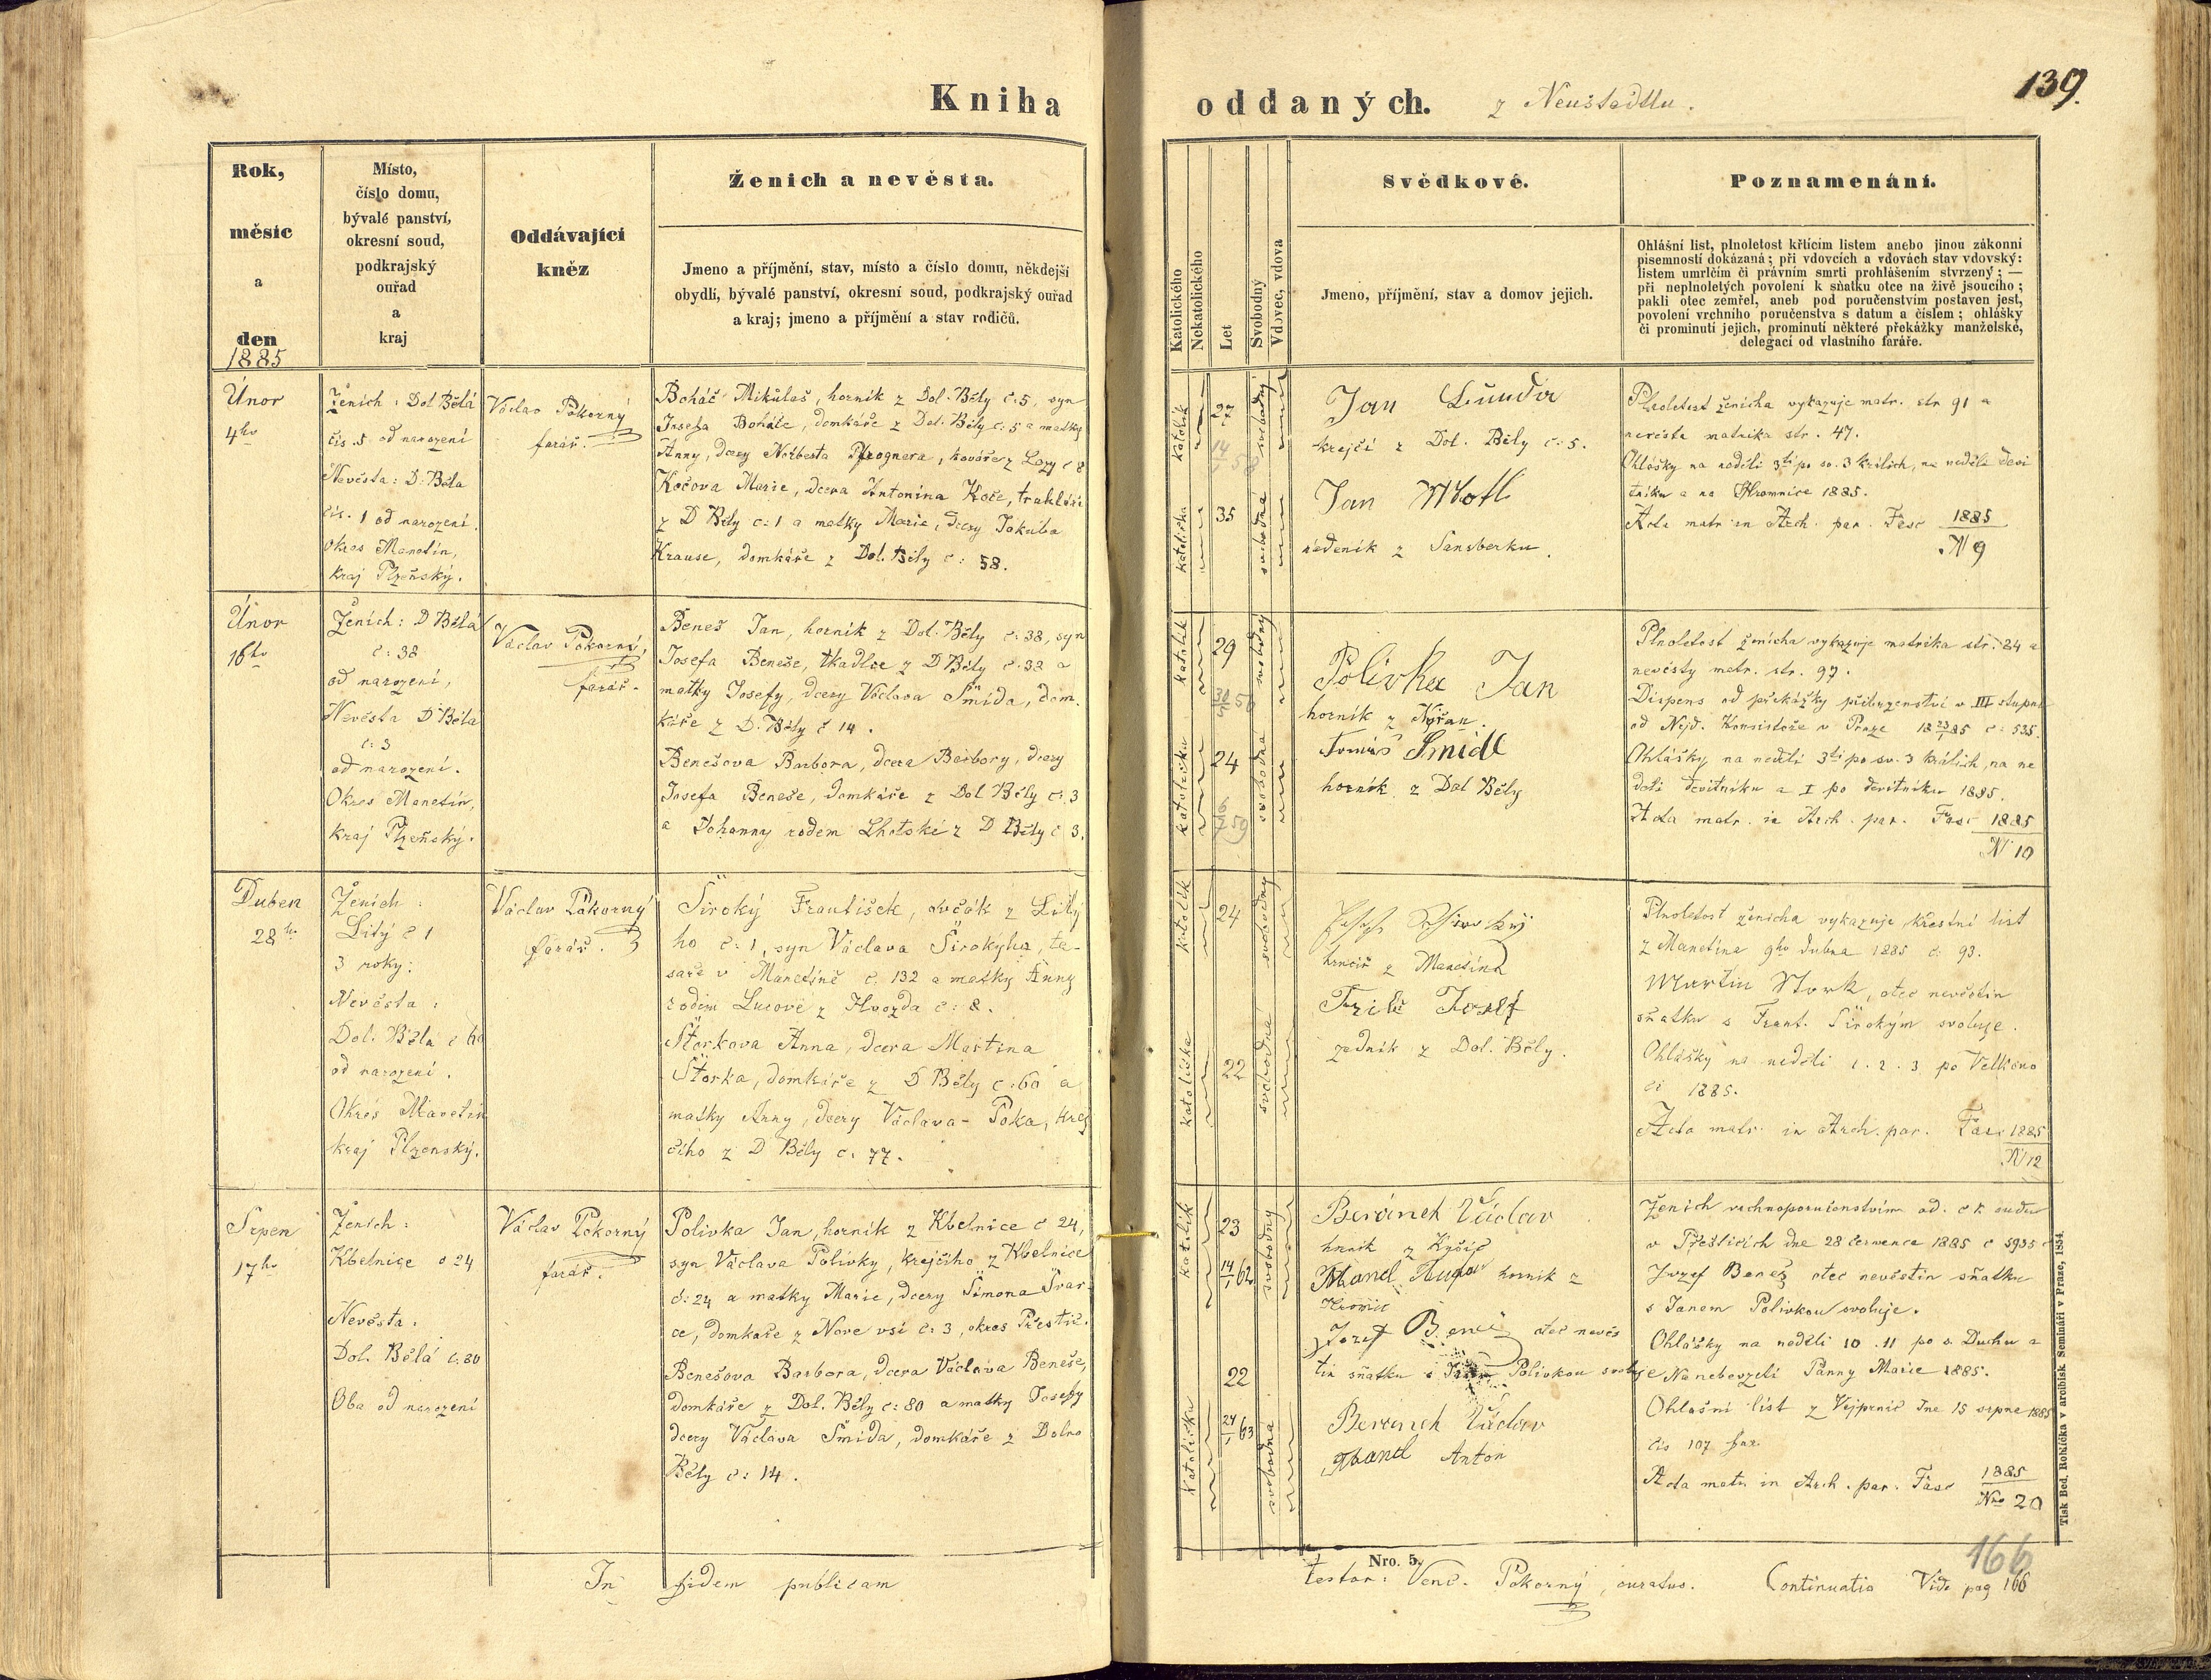 Kniha
oddaných.
z Neustadtlu.
139.
Rok,
měsíc
a
den
1885
Místo,
číslo domu,
bývalé panství,
okresní soud,
podkrajský
ouřad
a
kraj
Oddávající
kněz
Ženich a nevěsta.
Jmeno a příjmění, stav, místo a číslo domu, někdejší
obydlí, bývalé panství, okresní soud, podkrajský ouřad
a kraj; jmeno a příjmění a stav rodičů.
Katolického
Nekatolického
Let
Svobodný
Vdovec, vdova
Svědkové.
Jmeno, příjmění, stav a domov jejich.
Poznamenání.
Ohlášní list, plnoletost křticím listem anebo jinou zákonní
písemností dokázaná; při vdovcích a vdovách stav vdovský:
listem umrlčím či právním smrti prohlášením stvrzený; —
při neplnoletých povolení k sňatku otce na živě jsoucího;
pakli otec zemřel, aneb pod poručenstvím postaven jest,
povolení vrchního poručenstva s datum a číslem; ohlášky
či prominutí jejich, prominutí některé překážky manželské,
delegací od vlastního faráře.
Únor
4ho
Ženich: Dol Bělá
čís. 5 od narození
Nevěsta: D. Běla
čís. 1 od narození.
Okres Manetín,
Kraj Plzeňský.
Václav Pokorný
farář.
Boháč Mikúlaš, horník z Dol. Běly č: 5, syn
Josefa Boháče, domkáře z Dol. Běly č: 5 a matky
Anny, dcery Norberta Pfrognera, kováře z Lozy č 8
Kočova Marie, dcera Antonína Koče, traktéra
z D Běly č: 1 a matky Marie, dcery Jakuba
Krause, domkáře z Dol. Běly č: 58.
katolík
27
14/1 58
svobodný
katolička
35
svobodná
Jan Lůuda
krejčí z Dol. Běly č: 5.
Jan Motl
z Sansberku.
Plnoletost ženicha vykazuje matr. str 91 a
nevěsta matrika str. 47.
Ohlášky na neděli 3tí po sv. 3 králích, na neděli devi
tníku a na Hromnice 1885.
Acta matr in Arch. par. Fasc 1885
N 9
Únor
16ho
Ženich: D Bělá
č: 38
od narození,
Nevěsta D Bělá
č: 3
od narození.
Okres Manetín,
kraj Plzeňský.
Václav Pokorný,
farář.
Beneš Jan, horník z Dol. Běly č: 38, syn
Josefa Beneše, tkadlce z D Běly č. 38 a
matky Josefy, dcery Václava Šmída, dom.
káře z D. Běly č 14.
Benešova Barbora, dcera Barbory, dcery
Josefa Beneše, domkáře z Dol Běly č: 3
a Johanny rodem Lhotské z D Běly č 3.
katolík
29
30/5 56
svobodný
katolička
24
6/7 59
svobodná
Polívka Jan
horník z Nýřan.
Tomáš Šmídl
horník z Dol Běly
Plnoletost ženicha vykazuje matrika str. 84 a
nevěsty matr. str. 97.
Dispens od překážky příbuzenství v III stupni
od Nejd. Konsistoře v Praze 18 23/1 85 č: 535.
Ohlášky na neděli 3tí po sv. 3 králích, na ne
děli devítníku a I po devítníku 1885.
Acta matr. in Arch. par. Fasc 1885
N 10
Duben
28ho
Ženich:
Litý č 1
3 roky:
Nevěsta:
Dol. Bělá č 60
od narození.
Okres Manetín
kraj Plzenský.
Václav Pokorný
farář.
Široký František, ovčák z Litý
ho č: 1, syn Václava Širokýho, te-
saře v Manetíně č. 132 a matky Anny
rodem Lucové z Hvozda č: 8.
Štorkova Anna, dcera Martina
Štorka, domkáře z D Běly č: 60 a
matky Anny, dcery Václava Poka, krej
čího z D Běly č. 77.
katolík
24
svobodný
katolička
22
svobodná
z Manetína
Josef
zedník z Dol. Běly.
Plnoletost ženicha vykazuje křestní list
z Manetína 9ho dubna 1885 č. 93.
Martin Stork, otec nevěstin
sňatku s Frant. Širokým svoluje.
Ohlášky na neděli 1. 2. 3 po Velkono
ci 1885.
Acta matr. in Arch. par. Fasc 1885
N 12
Srpen
17ho
Ženich:
Kbelnice č 24
Nevěsta:
Dol. Bělá č. 80
Oba od narození
Václav Pokorný
farář.
Polívka Jan, horník z Kbelnice č 24,
syn Václava Polívky, krejčího z Kbelnice
č: 24 a matky Marie, dcery Šimona Švar-
ce, domkaře z Nove vsi č: 3, okres Přestic.
Benešova Barbora, dcera Václava Beneše,
domkáře z Dol. Běly č: 80 a matky Josefy
dcery Václava Šmída, domkáře z Dolno
Běly č: 14.
katolík
23
14/1 62
svobodný
Katolička
22
24/1 63
svobodna
Beránek Václav
horník z
Mandl horník z
Jozef Beneš otec nevěs
tin sňatku s Polívkou svoluje
Beránek Václav
Mandl Anton
Ženich vrchnoporučenstvím od. c k. sudu
v Přešticích dne 28 července 1885 č 5935
Jozef Beneš otec nevěstin sňatku
s Janem Polívkou svoluje.
Ohlášky na neděli 10. 11 po s. Duchu a
Nanebevzetí Panny Marie 1885.
Ohlašní list z Vejprnic dne 15 srpna 1885
čís 107 far.
Acta matr. in Arch. par. Fasc 1885
Nro 20
Tisk Bed. Rohlíčka v arcibisk. Semináři v Praze, 1854.
166
Nro. 5.
In fidem publicam
testor: Venc. Pokorný, curatus.
Continuatio Vide pag 166